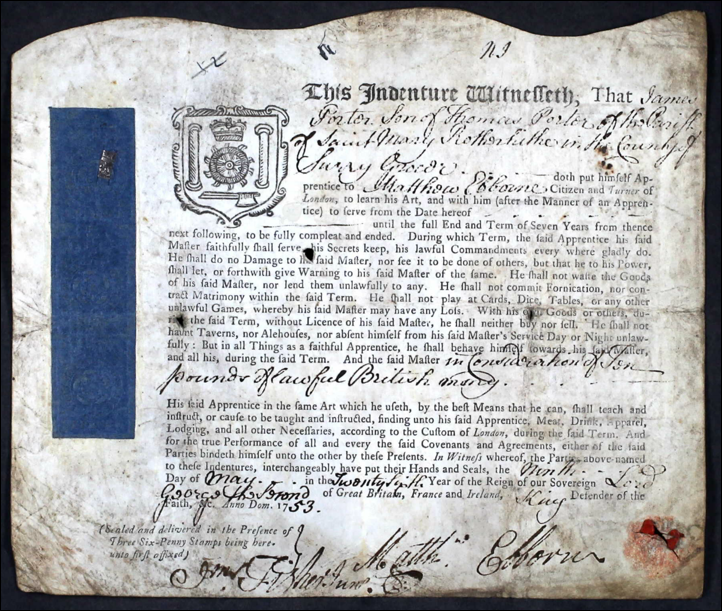 This Indenture Witnesseth, That James
Porter Son of Thomas Porter of the Parish
of Saint Mary Rotherhithe in the County of
Surry Grocer
doth put himself Ap-
prentice to Matthew Ebborne Citizen and Turner of
London, to learn his Art, and with him (after the Manner of an Appren-
tice) to serve from the Date hereof
until the full End and Term of Seven Years from thence
next following, to be fully compleat and ended. During which Term, the said Apprentice his said
Master faithfully shall serve his Secrets keep, his lawful Commandments every where gladly do.
He shall do no Damage to his said Master, nor see it to be done of others, but that he to his Power,
shall let, or forthwith give Warning to his said Master of the same. He shall not waste the Goods
of his said Master, nor lend them unlawfully to any. He shall not commit Fornication, nor con-
tract Matrimony within the said Term. He shall not play at Cards, Dice, Tables, or any other
unlawful Games, whereby his said Master may have any Loss. With his own Goods or others, du-
ring the said Term, without Licence of his said Master, he shall neither buy nor sell. He shall not
haunt Taverns, nor Alehouses, nor absent himself from his said Master's Service Day or Night unlaw-
fully: But in all Things as a faithful Apprentice, he shall behave himself towards his said Master,
and all his, during the said Term. And the said Master in Consideration of Ten
pounds of lawful British money.
His said Apprentice in the same Art which he useth, by the best Means that he can, shall teach and
instruct, or cause to be taught and instructed, finding unto his said Apprentice, Meat, Drink, Apparel,
Lodging, and all other Necessaries, according to the Custom of London, during the said Term. And
for the true Performance of all and every the said Covenants and Agreements, either of the said
Parties bindeth himself unto the other by these Presents. In Witness whereof, the Parties above-named
to these Indentures, interchangeably have put their Hands and Seals, the Ninth
Day of May in the Twenty sixth Year of the Reign of our Sovereign Lord
George the Second of Great Britain, France and Ireland, King Defender of the
Faith, &c. Anno Dom. 1753.
(Sealed and delivered in the Presence of
Three Six-Penny Stamps being here-
unto first affixed)
Matth. Ebborne
Fisher Junr